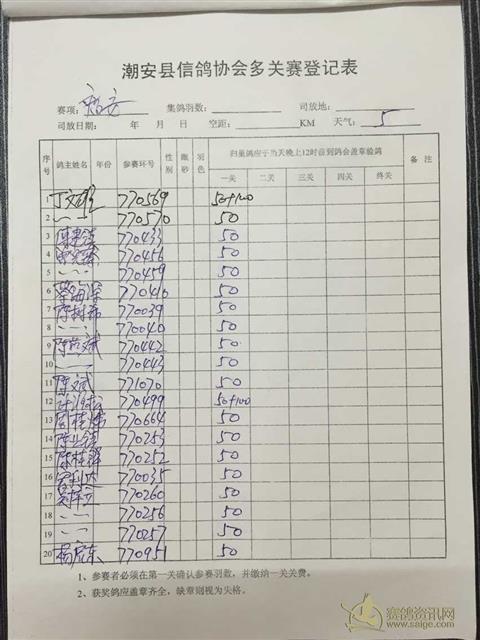 潮安县信鸽协会多关赛登记表
赛项: 集鸽羽数: 司放地:
司放日期: 年 月 日 空距: KM 天气: 5
序号 鸽主姓名 年份 参赛环号 性别 眼砂 羽色 归巢鸽应于当天晚上12时前到鸽会盖章验鸽 备注
一关 二关 三关 四关 终关
1 丁文 770569 50+100
2 770570 50
3 770433 50
4 770456 50
5 770459 50
6 770410 50
7 陈树 770039 50
8 770040 50
9 陈 斌 770442 50
10 770443 50
11 陈文斌 771070 50
12 770499 50+100
13 周桂 770664 50
14 陈 770253 50
15 陈桂 770252 50
16 770035 50
17 770260 50
18 770256 50
19 770257 50
20 杨 东 770951 50
1、参赛者必须在第一关确认参赛羽数，并缴纳一关关费。
2、获奖鸽应盖章齐全，缺章则视为失格。
赛鸽资讯网
www.saige.com